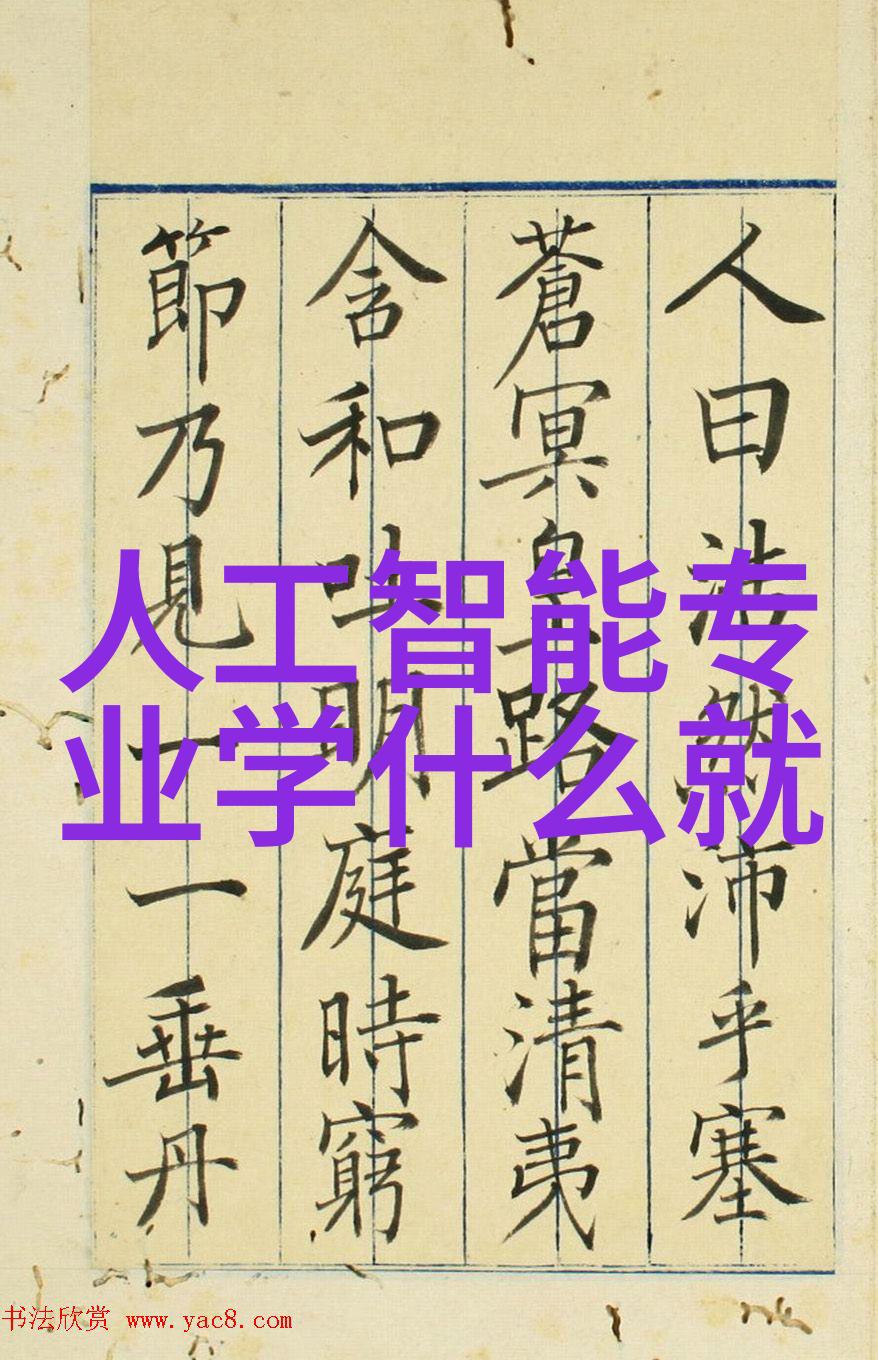 人曰浩然沛乎塞
蒼冥皇路當清夷
含和吐明庭時窮
節乃見一一垂丹
人工智能专
业学什么就
书法欣赏 www.yac8.com